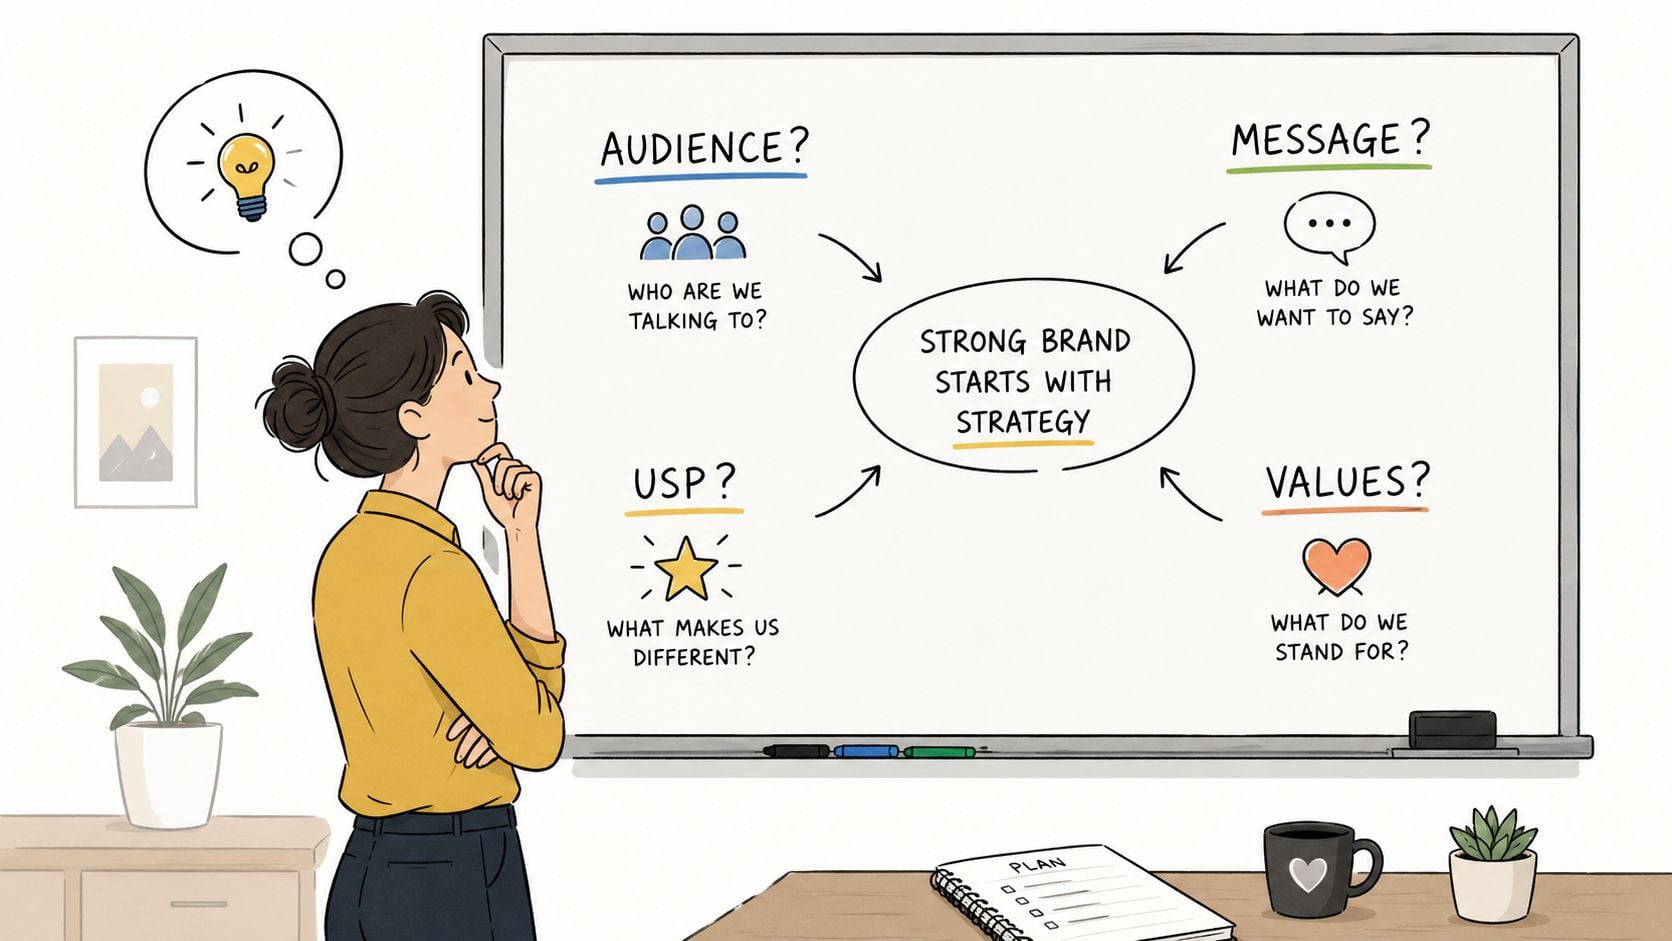 AUDIENCE?
WHO ARE WE
TALKING TO?
MESSAGE?
WHAT DO WE
WANT TO SAY?
STRONG BRAND
STARTS WITH
STRATEGY
USP?
WHAT MAKES US
DIFFERENT?
VALUES?
WHAT DO WE
STAND FOR?
PLAN